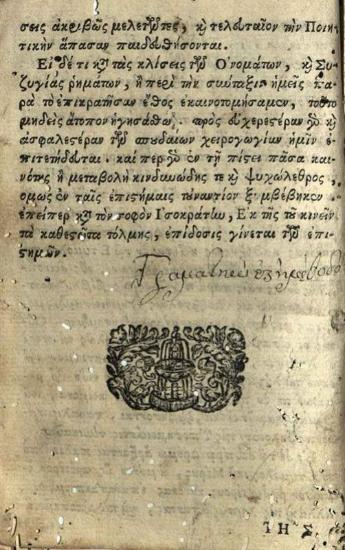 σεις ἀκριβῶς μελετῶντες, καὶ τελευταῖον τὴν Ποιη-
τικὴν ἅπασαν παιδευθήσονται.
Εἰ δέ τι κατὰ τὰς κλίσεις τῶν Ὀνομάτων, καὶ Συ-
ζυγίας ῥημάτων, ἢ περὶ τὴν σύνταξιν ἡμεῖς πα-
ρὰ τὸ ἐπικρατῆσαν ἔθος ἐκαινοτομήσαμεν, τοῦτο
μηδεὶς ἄτοπον ἡγησάσθω, πρὸς εὐχερεστέραν γὰρ καὶ
ἀσφαλεστέραν τῶν σπουδαίων χειραγωγίαν ἡμῖν ἐ-
πιτετήδευται. καὶ περ γὰρ ἐν τῇ πίστει πᾶσα και-
νότης ἢ μεταβολὴ κινδυνώδης τε καὶ ψυχώλεθρος,
ὅμως ἐν ταῖς ἐπιστήμαις τοὐναντίον ξυμβέβηκεν.
ἐπείπερ κατὰ τὸν σοφὸν Ἰσοκράτην, Ἐκ τῆς τοῦ κινεῖν
τὰ καθεστῶτα τόλμης, ἐπίδοσις γίνεται τῶν ἐπι-
στημῶν.
ΤΗΣ